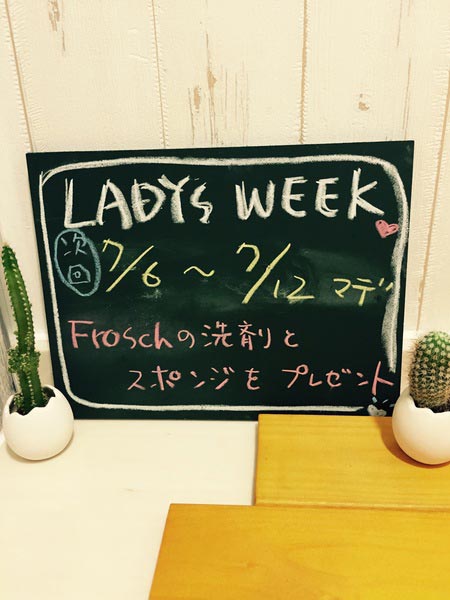 LADYs WEEK
次回 7/6 〜 7/12 マデ
Froschの洗剤と
スポンジを プレゼント